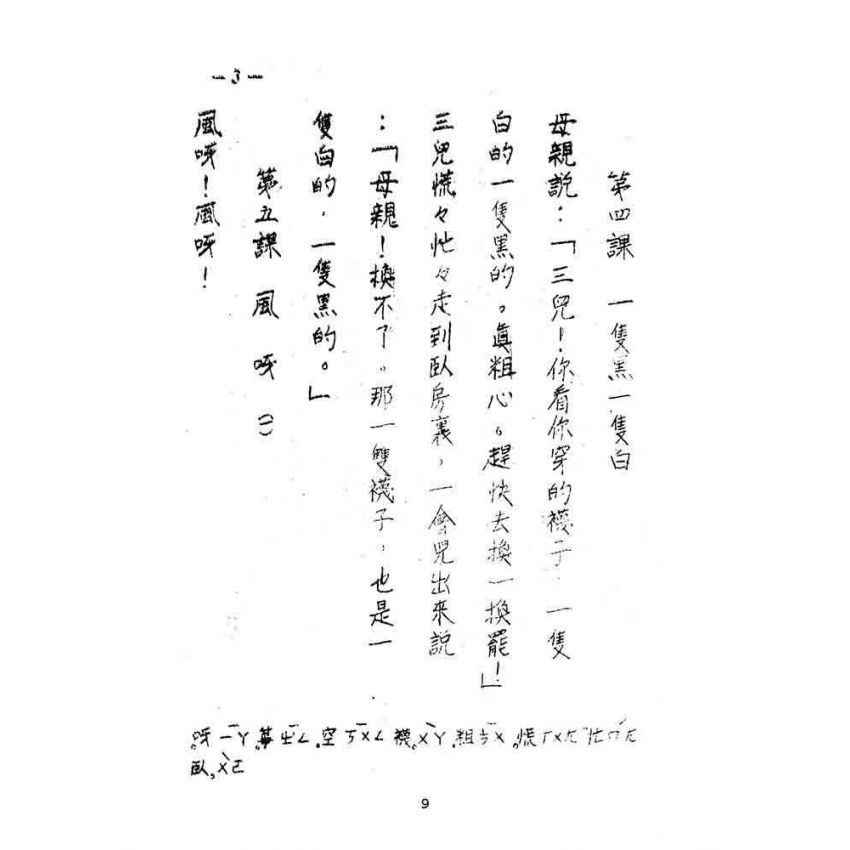 －3－
第四課　一隻黑一隻白
母親説：「三兒！你看你穿的襪子 一隻
白的一隻黑的。眞粗心。趕快去換一換罷！」
三兒慌々忙々走到臥房裏，一會兒出來説
：「母親！換不了。那一雙襪子，也是一
隻白的，一隻黑的。」
第五課　風　呀　㈠
風呀！風呀！
呀ㄧㄚ 箏ㄓㄥ．空ㄎㄨㄥ 襪。ㄨㄚˋ．粗ㄘㄨ。慌ㄏㄨㄤ 忙ㄇㄤˊ
臥。ㄨㄛˋ
9